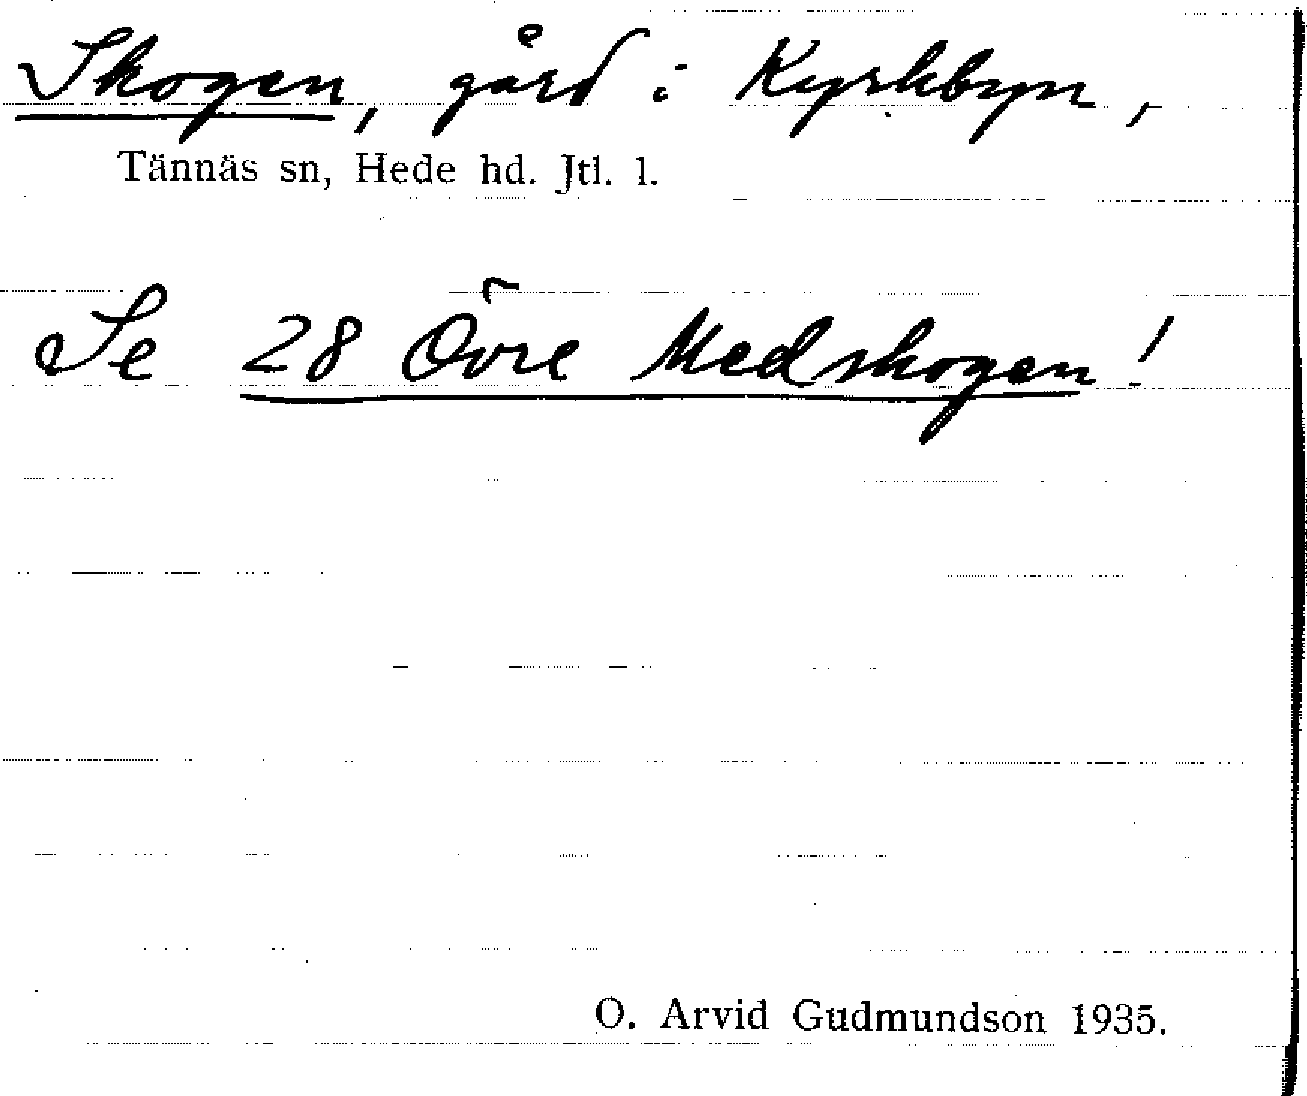 Skogen, gård i Kyrkbyn,
Tännäs sn, Hede hd. Jtl. l.
Se 28 Övre Medskogen!
O. Arvid Gudmundson 1935.